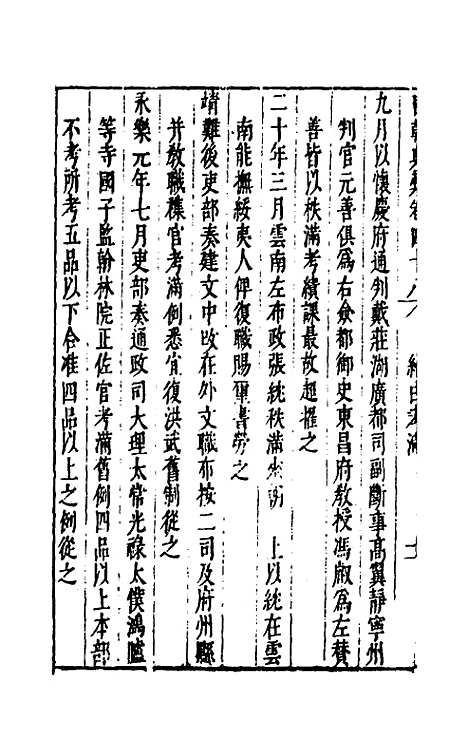 典彙卷四十八
九月以懷慶府通判戴莊湖廣都司副斷事高翼靜寧州
判官元善俱為右僉都御史東昌府教授馮㕡為左贊
善皆以秩滿考績課最故超擢之
二十年三月雲南左布政張紞秩滿來朝　上以紞在雲
南能撫綏夷人俾復職賜璽書勞之
靖難後吏部奏建文中改在外文職布按二司及府州縣
并教職襍官考滿例悉宜復洪武舊制從之
永樂元年七月吏部奏通政司大理太常光祿太僕鴻臚
等寺國子監翰林院正佐官考滿舊例四品以上本部
不考所考五品以下合准四品以上之例從之